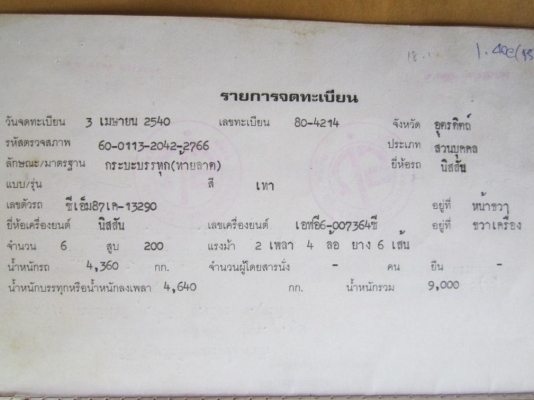 รายการจดทะเบียน
วันจดทะเบียน 3 เมษายน 2540 เลขทะเบียน 80-4214 จังหวัด อุตรดิตถ์
รหัสตรวจสภาพ 60-0113-2042-2766 ประเภท ส่วนบุคคล
ลักษณะ/มาตรฐาน กระบะบรรทุก(ท้ายลาด) ยี่ห้อรถ นิสสัน
แบบ/รุ่น สี เทา
เลขตัวรถ ซีเอ็ม87เค-13290 อยู่ที่ หน้าขวา
ยี่ห้อเครื่องยนต์ นิสสัน เลขเครื่องยนต์ เอฟอี6-007364ซี อยู่ที่ ขวาเครื่อง
จำนวน 6 สูบ 200 แรงม้า 2 เพลา 4 ล้อ ยาง 6 เส้น
น้ำหนักรถ 4,360 กก. จำนวนผู้โดยสารนั่ง - คน ยืน -
น้ำหนักบรรทุกหรือน้ำหนักลงเพลา 4,640 กก. น้ำหนักรวม 9,000